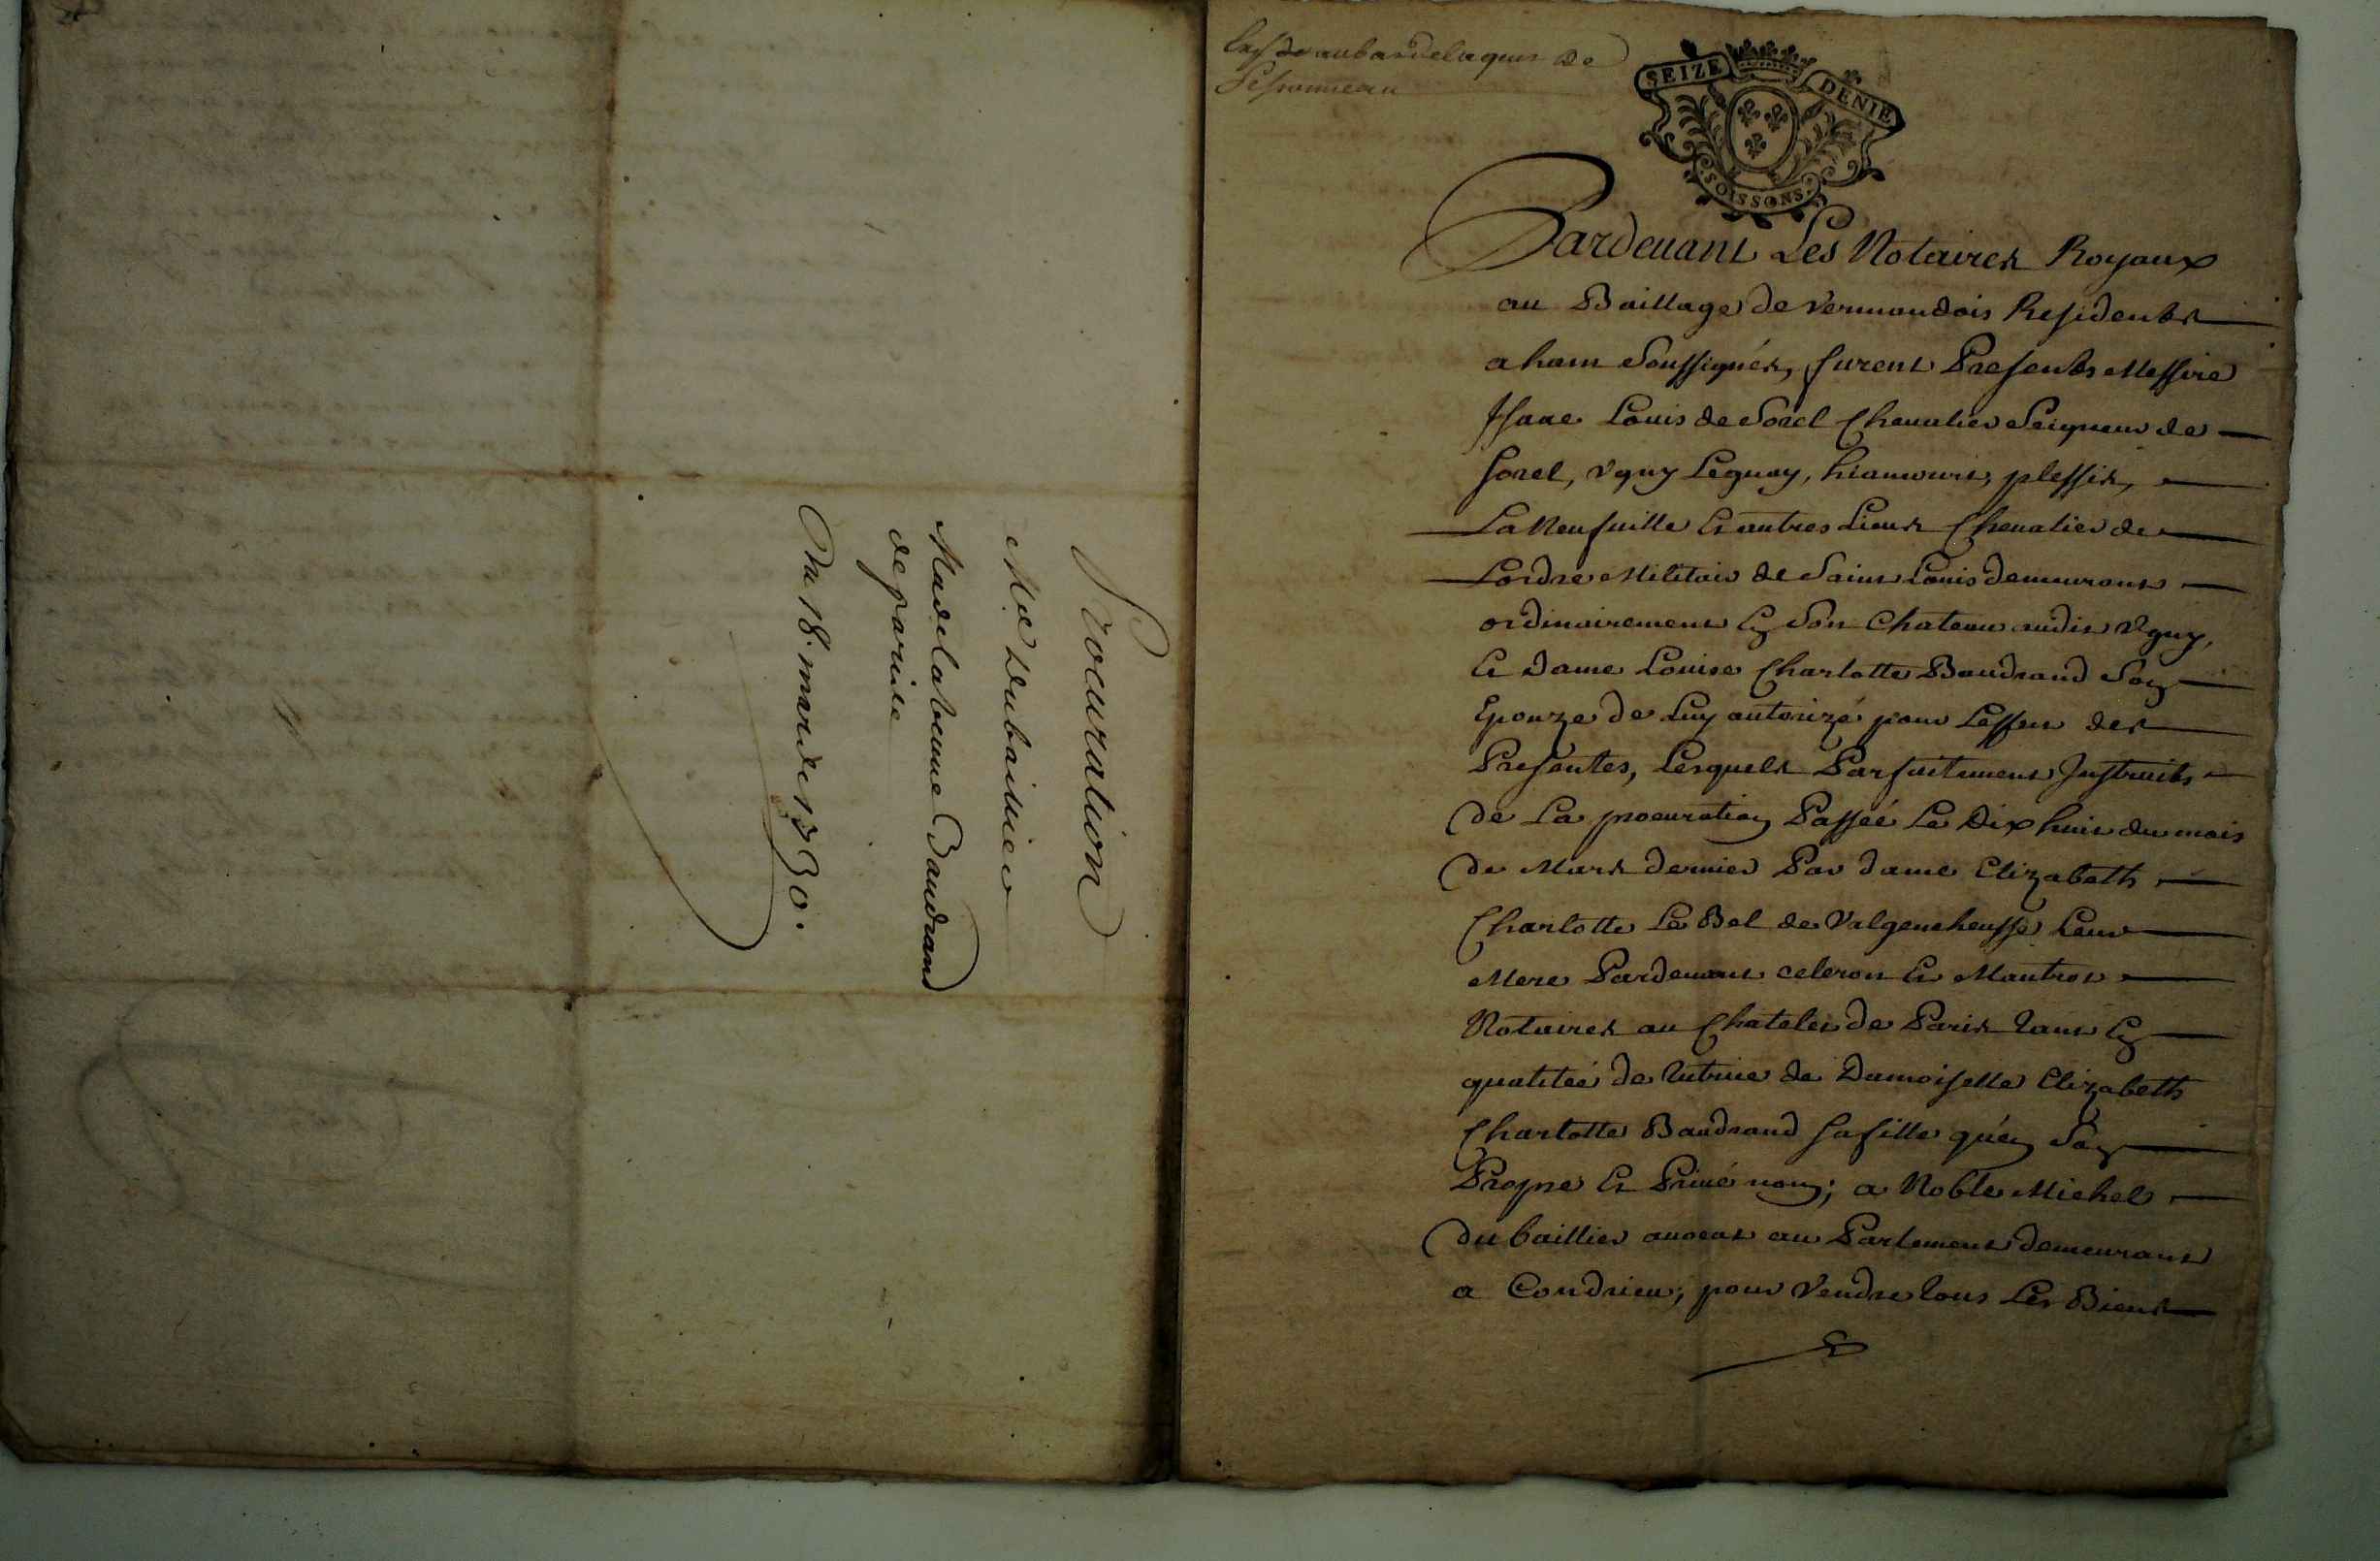 Procuration
Me Dubaillier
Madelaveuve Baudrand
de paris
Du 18. mards 1730.
de
SEIZE DENIE
SOISSONS
Pardeuant Les Notaires Royaux
au Baillage de Vermandois Residents
a ham Soussignés, furent Presents Messire
Isaac Louis de Sorel Cheualier Seigneur de
Sorel, Vgny Leguay, hiamouri, plessis,
La Neufuille Et autres Lieux Cheualier de
Lordre Militair de Saint Louis demeurant
ordinairement En Son Chateau audit Vgny,
Et Dame Louise Charlotte Baudrand Son
Epouze de Luy autorizé pour Leffet des
Presentes, Lesquels Parfaitement Instruits
de La procuration Passéé Le Dix huit du mois
de Mars dernier Par dame Elizabeth
Charlotte Le Bel de Valgeneheusse Leur
Mere Pardeuant celeron Et Mautrot
Notaires au Chatelet de Paris tant En
qualiteé de tutrice de Damoiselle Elizabeth
Charlotte Baudrand sa fille qu'én Son
Propre Et Priué nom; a Noble Michel
du baillier auocat au Parlement demeurant
a Condrieu; pour Vendre tous Les Biens